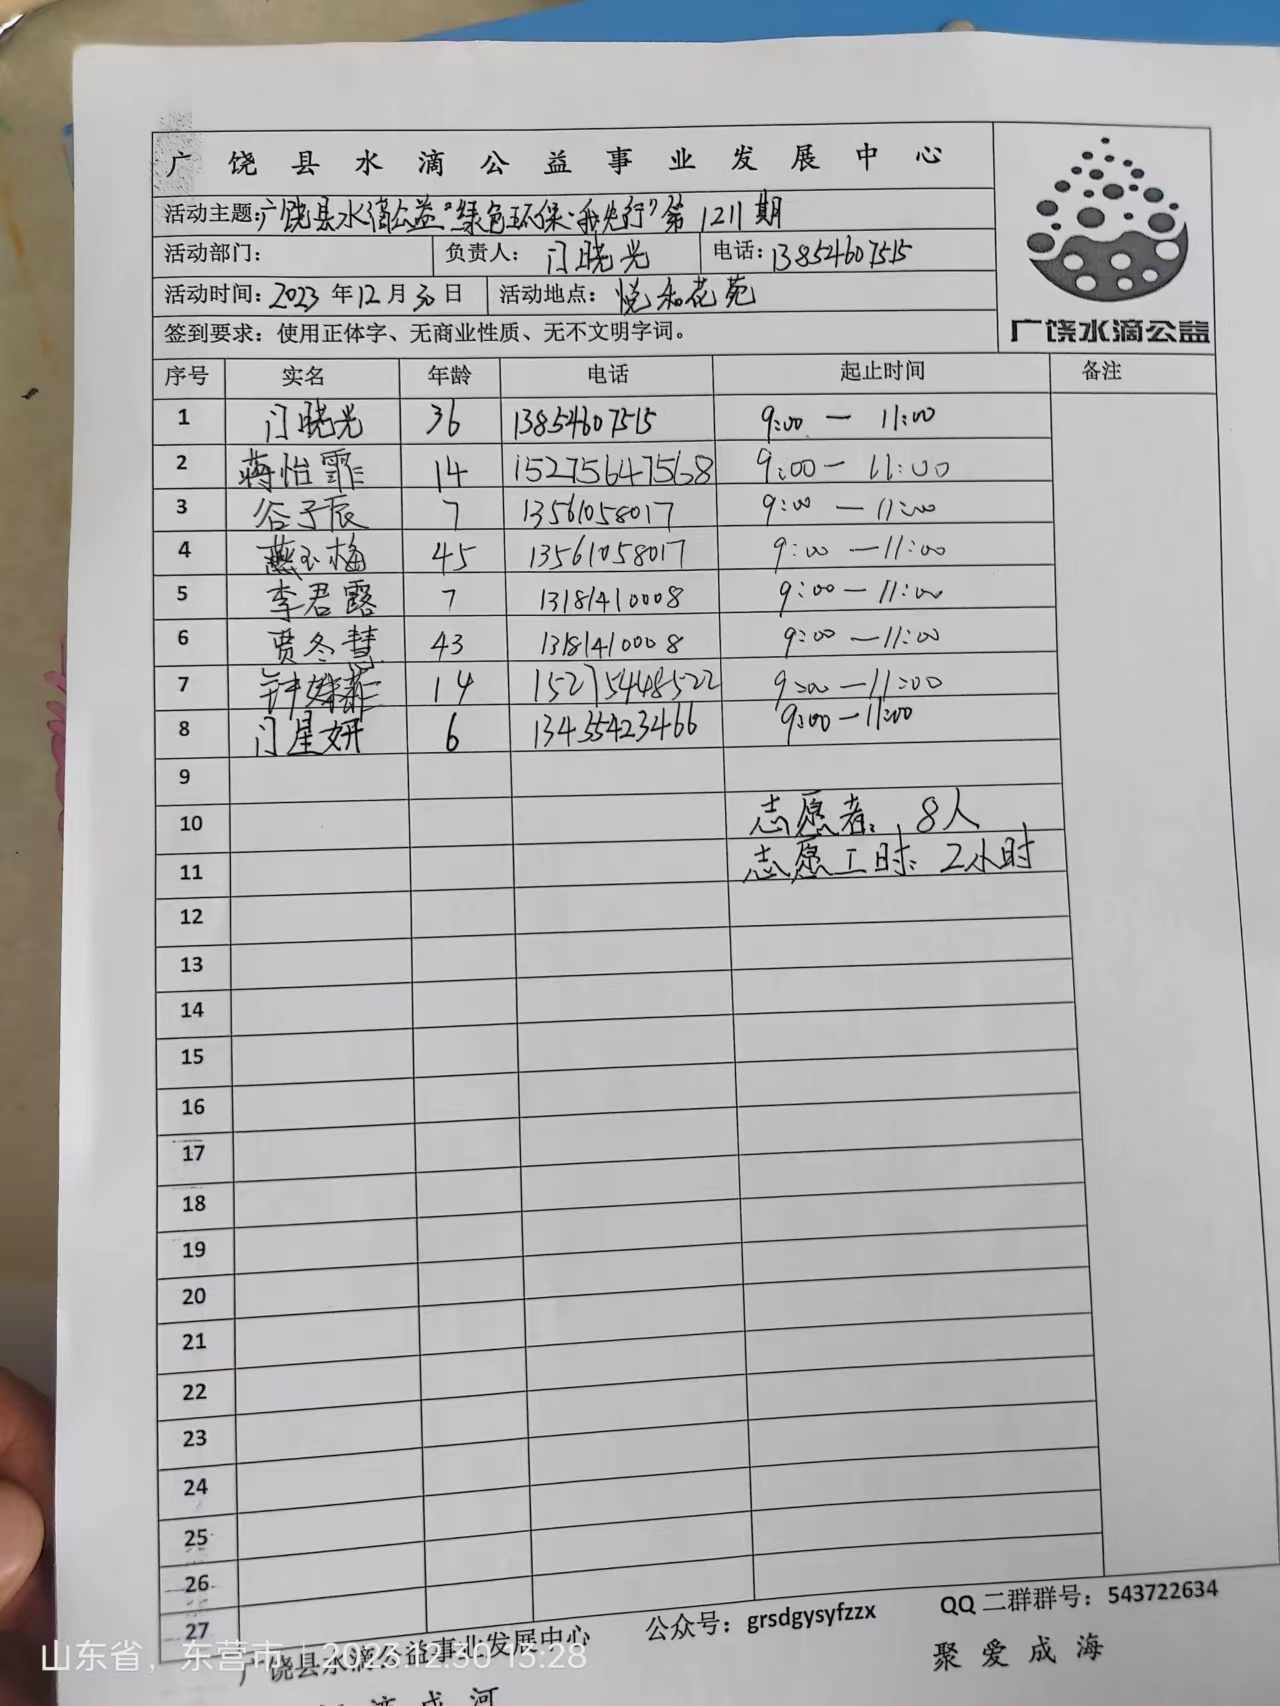 广饶县水滴公益事业发展中心
活动主题:广饶县水滴公益"绿色环保·我先行"第1211期
活动部门: 负责人: 门晓光 电话:13854607515
活动时间:2023年12月30日 活动地点: 悦和花苑
签到要求:使用正体字、无商业性质、无不文明字词。
广饶水滴公益
序号 实名 年龄 电话 起止时间 备注
1 门晓光 36 13854607515 9:00 — 11:00
2 蒋怡霏 14 15275647568 9:00 — 11:00
3 谷子辰 7 13561058017 9:00 — 11:00
4 燕玉梅 45 13561058017 9:00 — 11:00
5 李君露 7 13181410008 9:00 — 11:00
6 贾冬慧 43 13181410008 9:00 — 11:00
7 钟菲 14 15275448522 9:00 — 11:00
8 门星妍 6 13455423466 9:00 — 11:00
9
10 志愿者:8人
11 志愿工时:2小时
12
13
14
15
16
17
18
19
20
21
22
23
24
25
26
27
广饶县水滴公益事业发展中心 公众号:grsdgysyfzzx QQ二群群号:543722634
成河 聚爱成海
山东省,东营市 | 2023.12.30 13:28